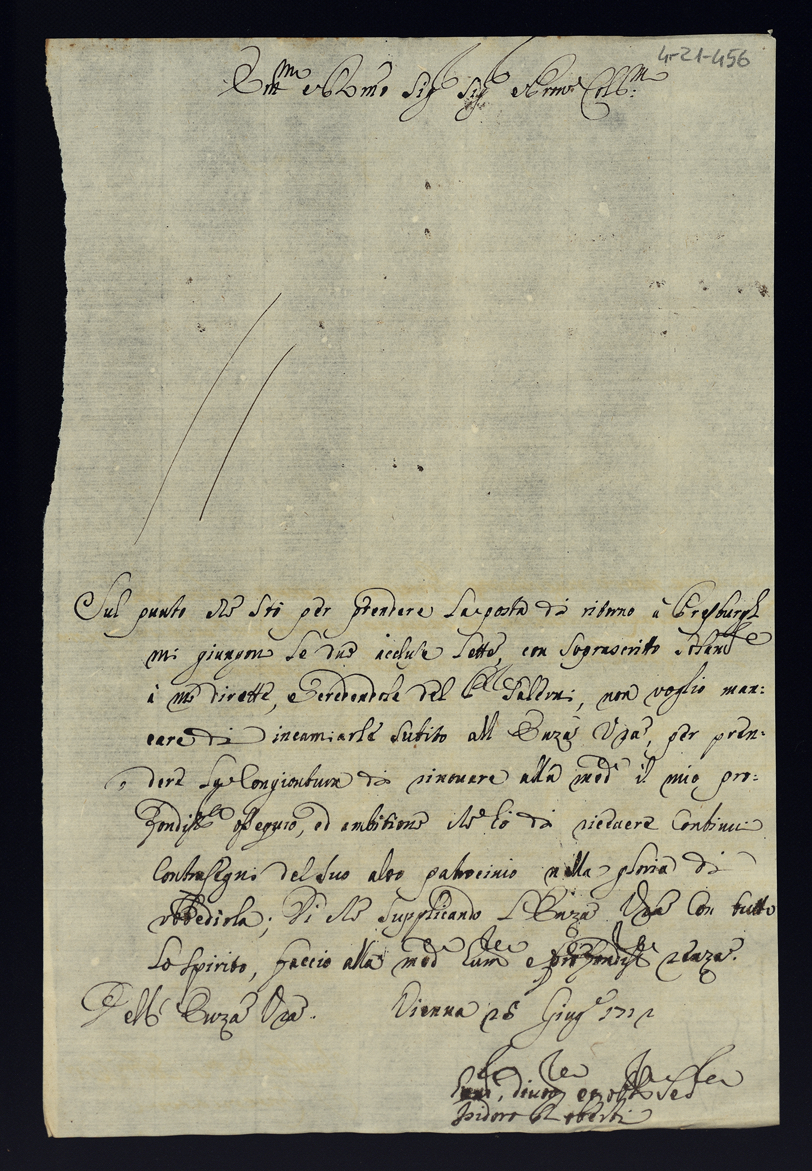 4-21-456
Em.mo e Rmo Sig.r Sig.r e Prone Coll.mo
Sul punto che stò per prendere la posta di ritorno à Presburgh
mi giungon le due accluse lettere, con soprascritto
à me dirette, e credendole del Saldini, non voglio man:
care di incamiarle subito all' Emza Vra, per pren:
dere la congiontura di rinovare alla med.a il mio pro:
fondiss.o ossequio, ed ambitione che hò di ricevere continui
contrasegni del suo alto patrocinio nella gloria di
ubbedirla; Di che supplicando l'Emza Vra con tutto
lo spirito, faccio alla med.a hum.ma e profondiss.ma renza.
Dell' Emza Vra. Vienna 28 Giug.o 1712
Hum.mo, divot.mo ed obb.mo Ser.re
Isidoro Roberti